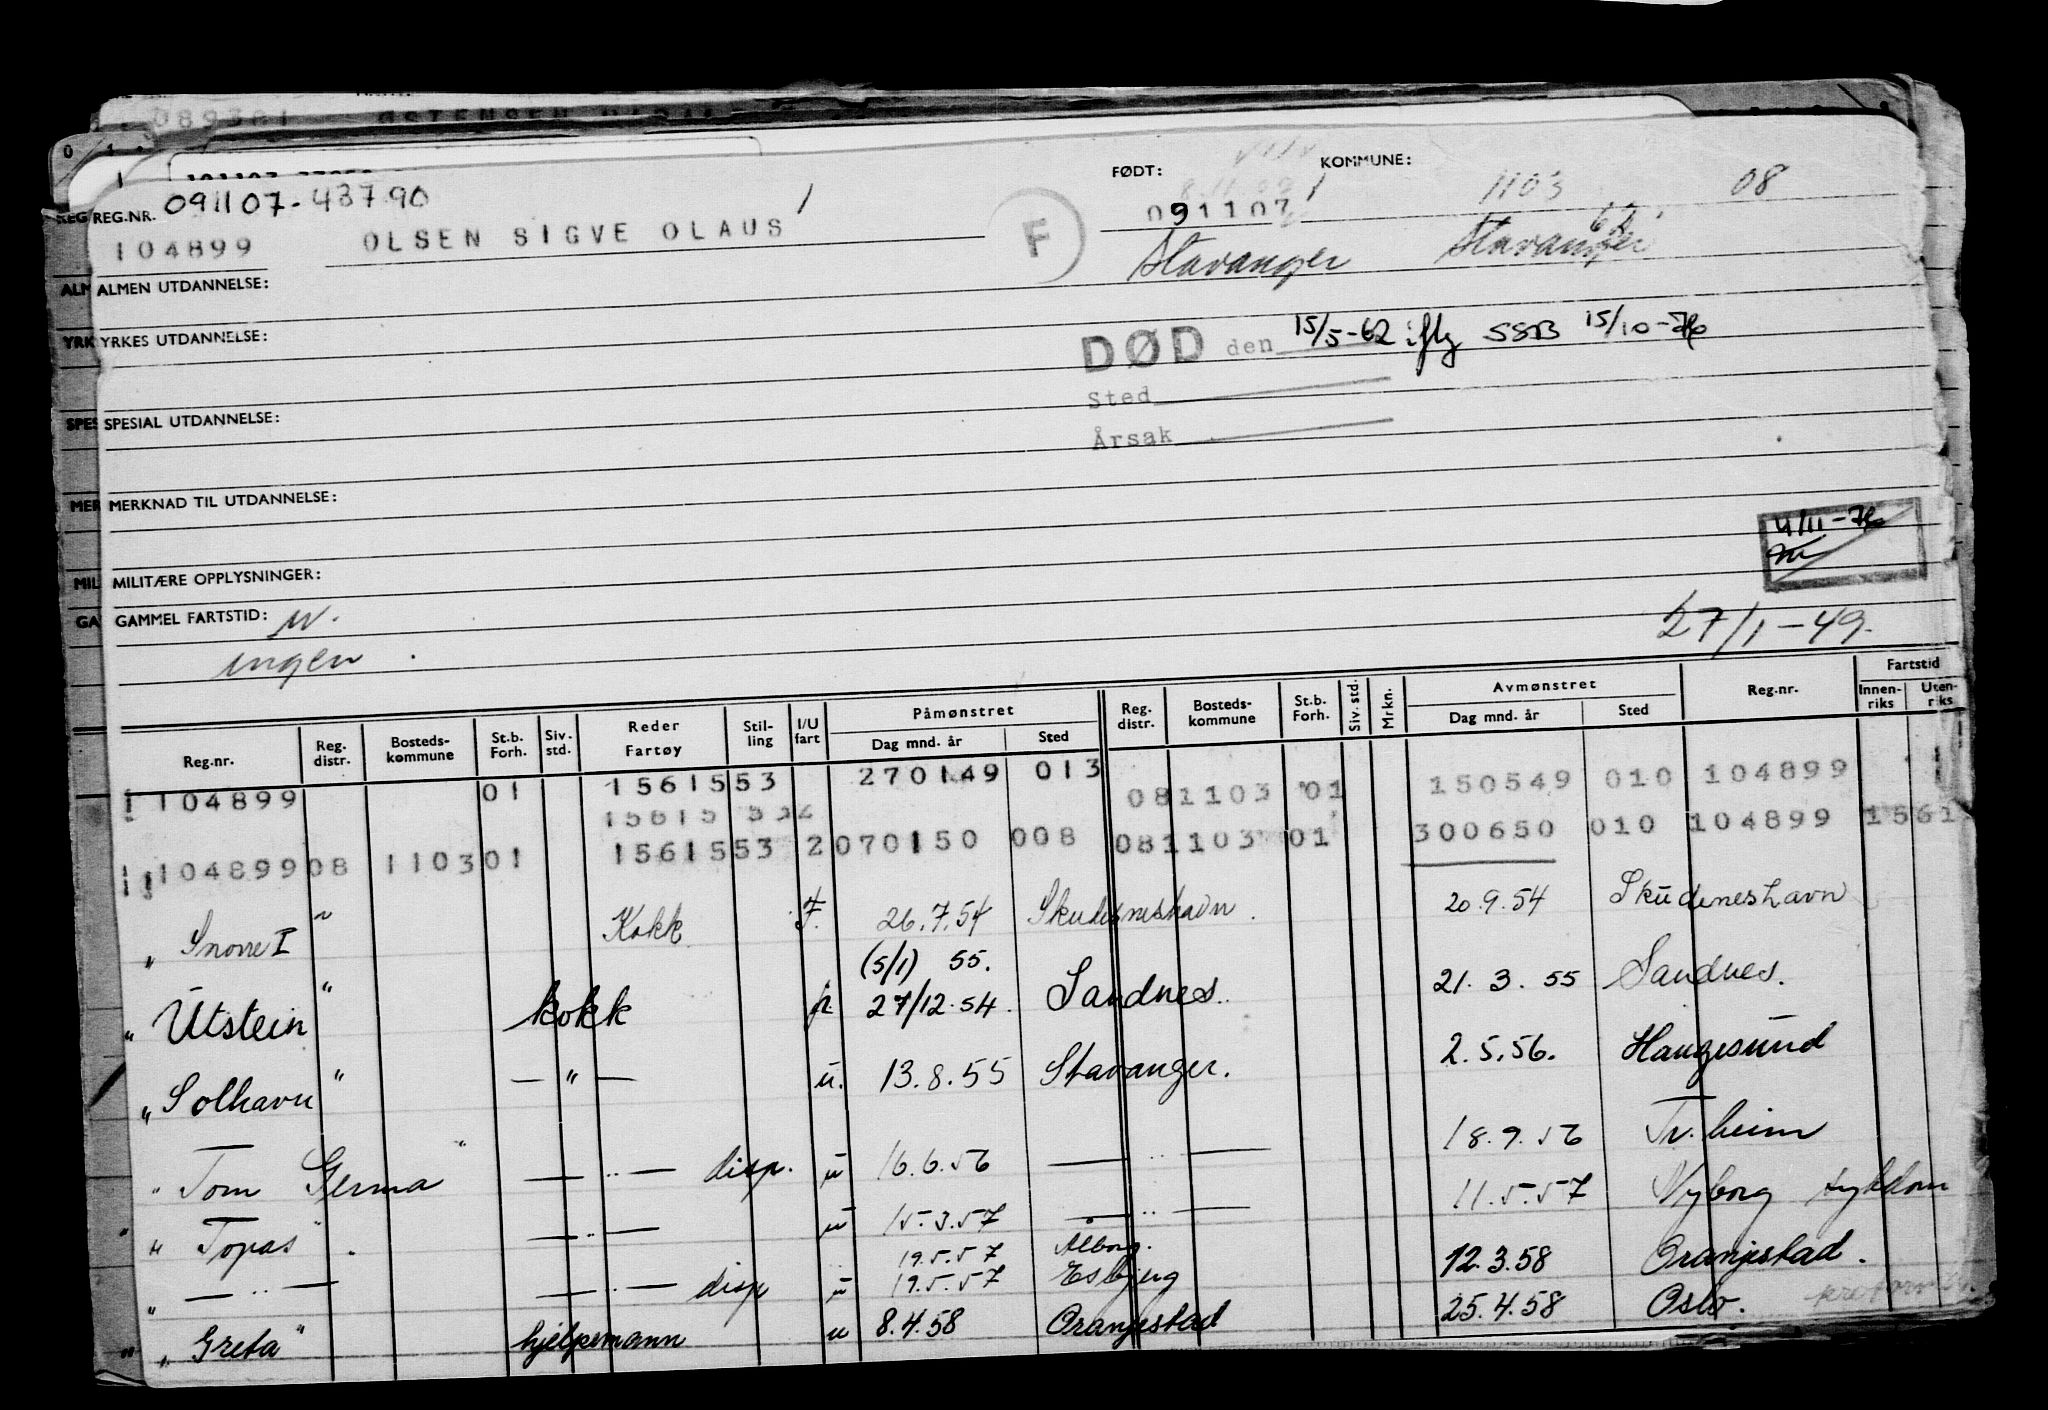 089381
FØDT:
KOMMUNE:
REG.NR. 091107-43790
091107
1103
08
104899
OLSEN SIGVE OLAUS
F
Stavanger
Stavanger
62
ALMEN UTDANNELSE:
YRKES UTDANNELSE:
DØD den 15/5-62 iflg SSB 15/10-76
Sted
Årsak
SPESIAL UTDANNELSE:
MERKNAD TIL UTDANNELSE:
4/11-76
MILITÆRE OPPLYSNINGER:
GAMMEL FARTSTID:
27/1-49.
ingen
Reg.nr. Reg. distr. Bosteds-kommune St.b. Forh. Siv. std. Reder Fartøy Stil-ling I/U fart Påmønstret Dag mnd. år Sted Reg. distr. Bosteds-kommune St.b. Forh. Siv. std. Mrkn. Avmønstret Dag mnd. år Sted Reg.nr. Fartstid Innen-riks Uten-riks
104899 01 1561553 270149 013 081103 01 150549 010 104899
10489908 110301 1561553 2 070150 008 081103 01 300650 010 104899 1561
" Snorre I " Kokk F. 26.7.54 Skudesneshavn. 20.9.54 Skudeneshavn
(5/1) 55.
" Utstein " kokk 27/12.54. Sandnes. 21.3.55 Sandnes.
" Solhavn " — " — u. 13.8.55 Stavanger. 2.5.56. Haugesund
" Tom Germa " — " — disp. u 16.6.56 — " — 18.9.56 Tr.heim
" Topas " — " — u 15.3.57 — " — 11.5.57 Nyborg sykdom
19.5.57 Ålborg.
" — " — — " — disp u 19.5.57 Esbjerg 12.3.58 Oranjestad.
" Greta " hjelpemann u 8.4.58 Oranjestad 25.4.58 Oslo.